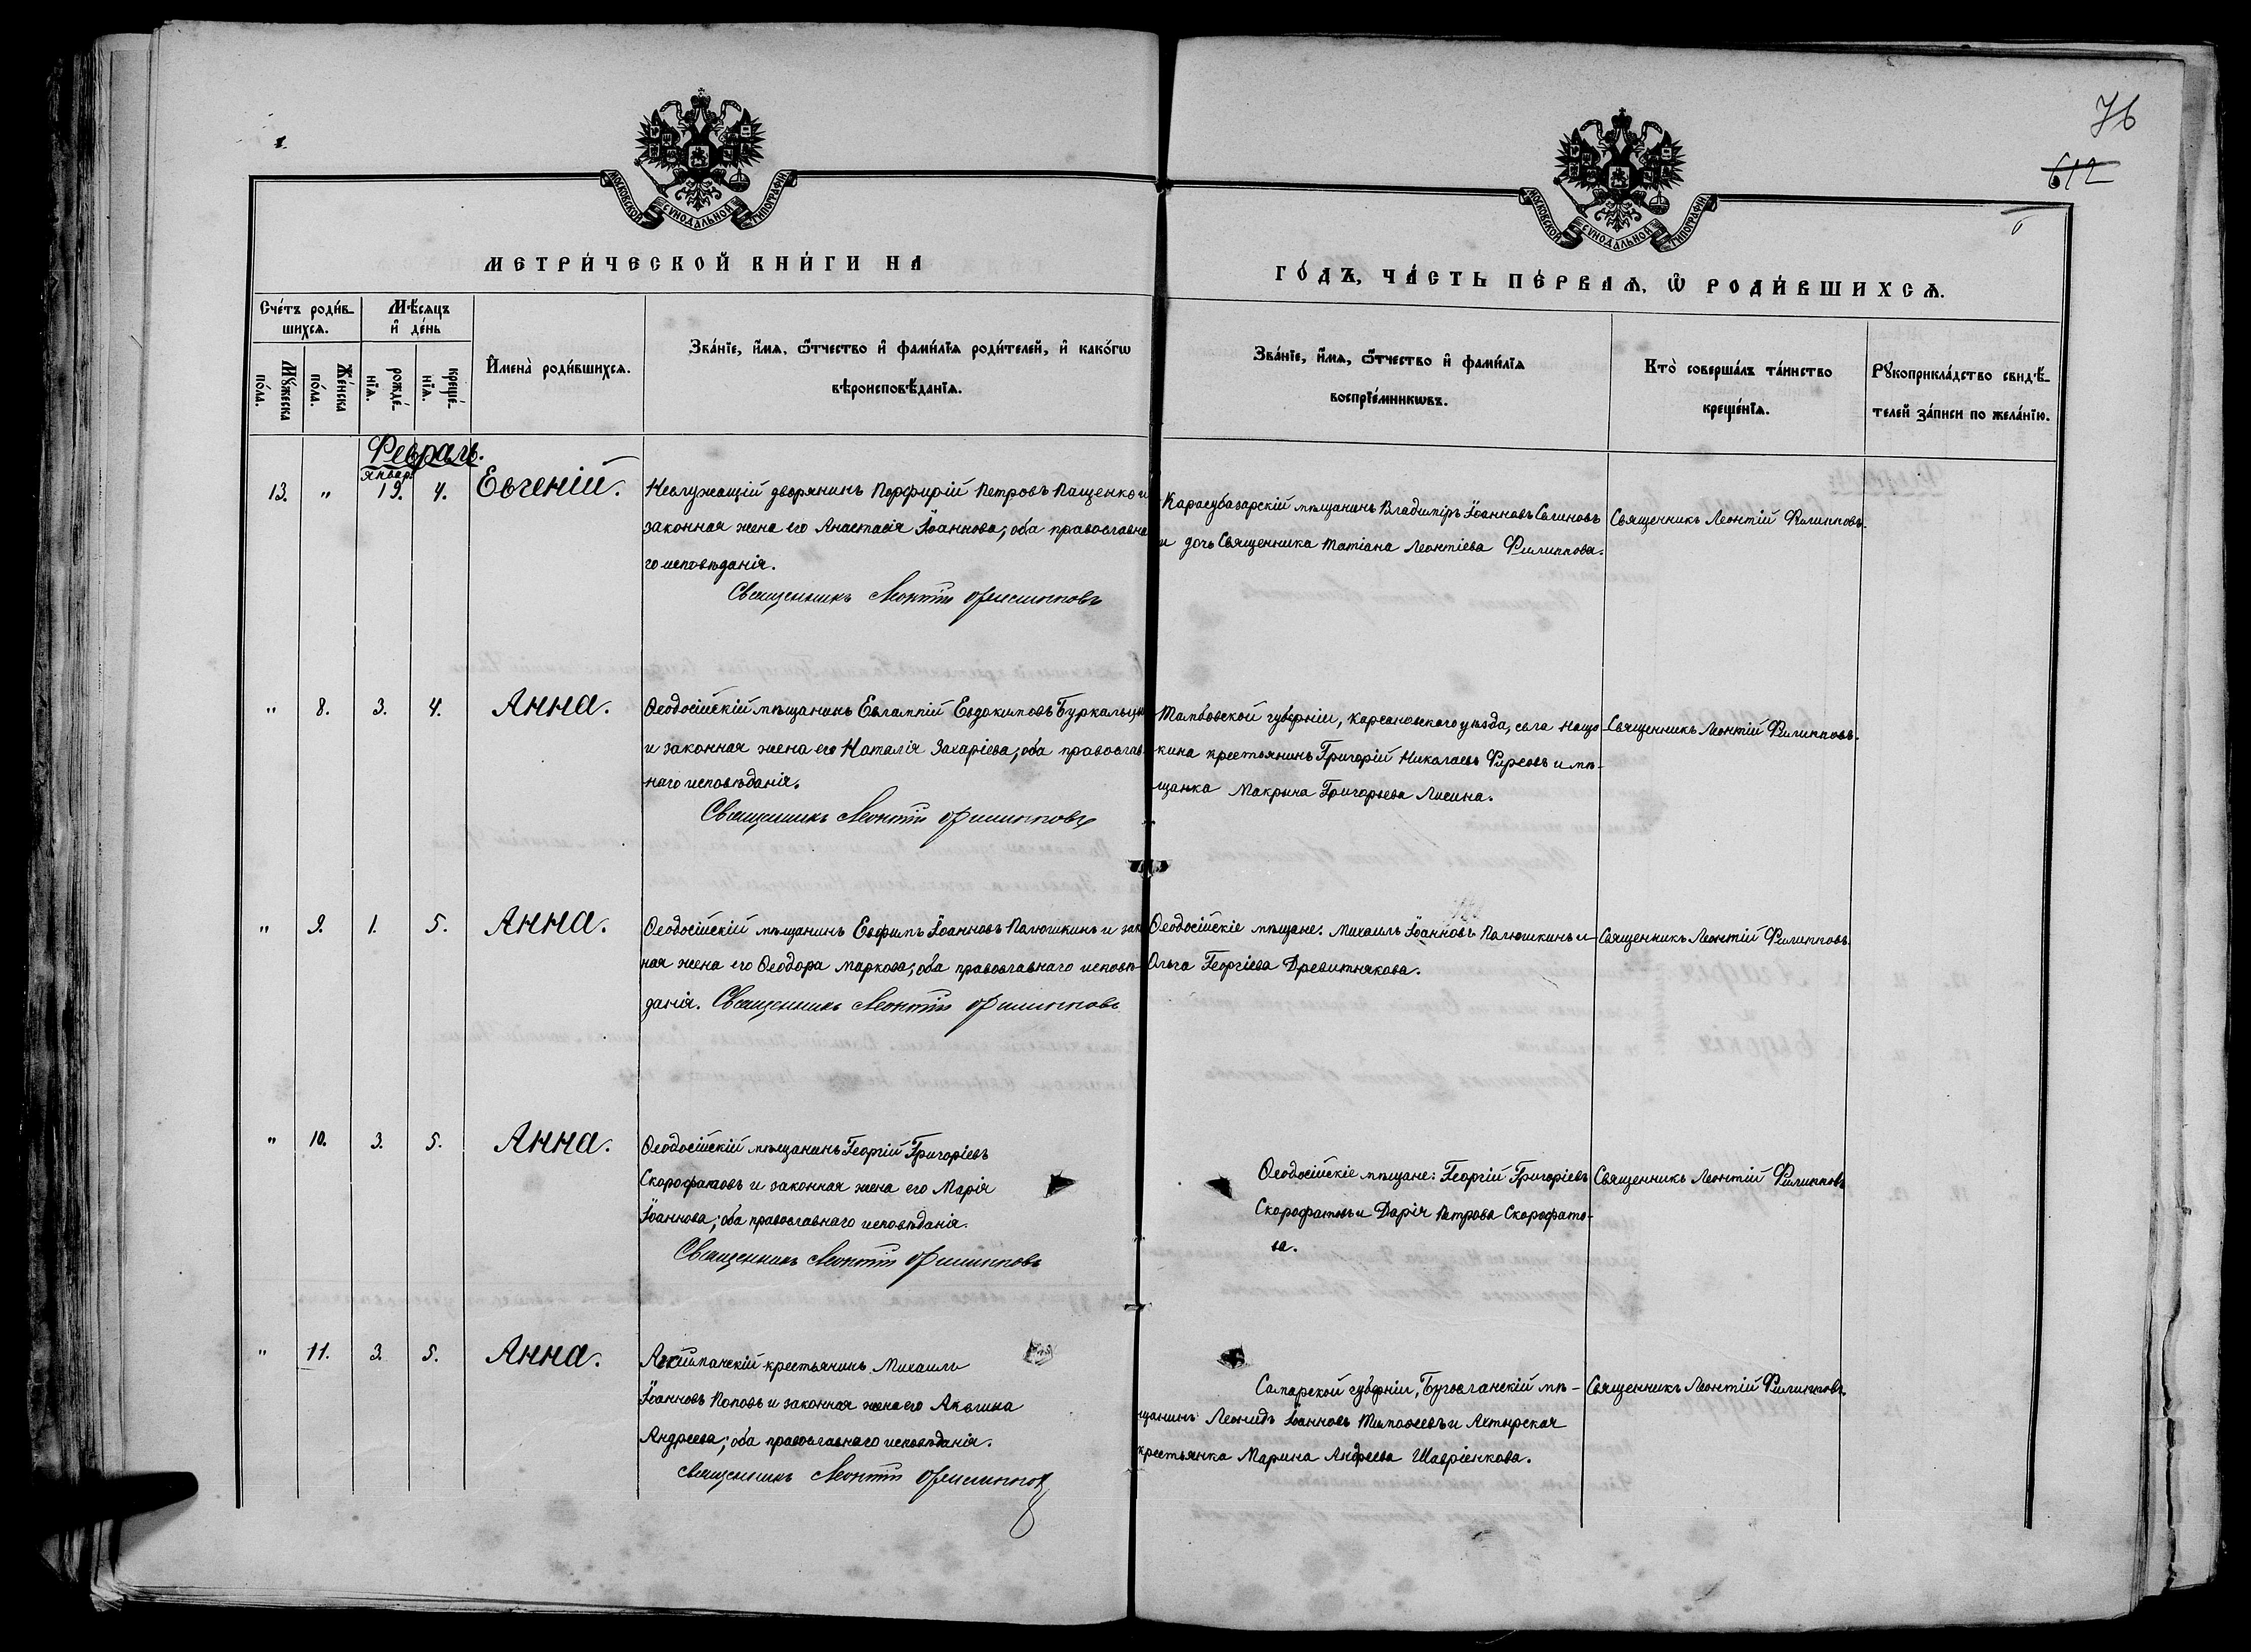 76
612
МОСКОВСКОЙ СѴНОДАЛЬНОЙ ТИПОГРАФІИ
МОСКОВСКОЙ СѴНОДАЛЬНОЙ ТИПОГРАФІИ
МЕТРИ́ЧЕСКОЙ КНИ́ГИ НА
ГО́ДЪ, ЧА́СТЬ ПЕ́РВАѦ, Ѽ РОДИ́ВШИХСѦ.
Сче́тъ роди́в-
шихсѧ.
Мꙋ́жеска
по́ла.
Же́нска
по́ла.
Мѣ́сѧцъ
и҆ де́нь
рожде́-
нїѧ.
креще́-
нїѧ.
И҆мена̀ роди́вшихсѧ.
Зва́нїе, и҆́мѧ, ѻ҆́тчество и҆ фами́лїѧ роди́телей, и҆ како́гѡ
вѣроисповѣ́данїѧ.
Зва́нїе, и҆́мѧ, ѻ҆́тчество и҆ фами́лїѧ
воспрїе́мникѡвъ.
Кто̀ соверша́лъ та́инство
креще́нїѧ.
Рꙋкоприкла́дство свидѣ́-
телей за́писи по жела́нїю.
Февраль.
январ.
13. " 19. 4. Евгеній.
Неслужащій дворянинъ Порфирій Петровъ Пащенко и
законная жена его Анастасія Іоаннова; оба православна
го исповѣданія.
Священникъ Леонтій Филипповъ
Карасубазарскій мѣщанинъ Владиміръ Іоанновъ
и дочь Священника Татіана Леонтіева Филиппова.
Священникъ Леонтій Филипповъ.
" 8. 3. 4. Анна.
Ѳеодосійскій мѣщанинъ Евлампій Евдокимовъ
и законная жена его Наталія Захаріева; оба православ-
наго исповѣданія.
Священникъ Леонтій Филипповъ
Тамбовской губерніи, Карсановскаго уѣзда, села Нащо-
кина крестьянинъ Григорій Николаевъ Фирсовъ и мѣ-
щанка Макрина Григорьева Лисина.
Священникъ Леонтій Филипповъ.
" 9. 1. 5. Анна.
Ѳеодосійскій мѣщанинъ Евфимъ Іоанновъ Палюшкинъ и зак
ная жена его Ѳеодора Маркова; оба православнаго исповѣ-
данія. Священникъ Леонтій Филипповъ
Ѳеодосійскіе мѣщане. Михаилъ Іоанновъ Палюшкинъ и
Ольга Георгіева Древитнякова.
Священникъ Леонтій Филипповъ
" 10. 3. 5. Анна.
Ѳеодосійскій мѣщанинъ Георгій Григоріевъ
Скорофатовъ и законная жена его Марія
Іоаннова; оба православнаго исповѣданія.
Священникъ Леонтій Филипповъ
Ѳеодосійскіе мѣщане: Георгій Григоріевъ
Скорофатовъ и Дарія Петрова Скорофато-
ва.
Священникъ Леонтій Филипповъ
" 11. 3. 5. Анна.
крестьянинъ Михаилъ
Іоанновъ Поповъ и законная жена его Акилина
Андреева; оба православнаго исповѣданія.
Священникъ Леонтій Филипповъ
Самарской губерніи, Бугосланскій мѣ-
щанинъ Леонидъ Іоанновъ Тимофеевъ и Ахтырская
крестьянка Марина Андреева Шавріенкова.
Священникъ Леонтій Филипповъ.